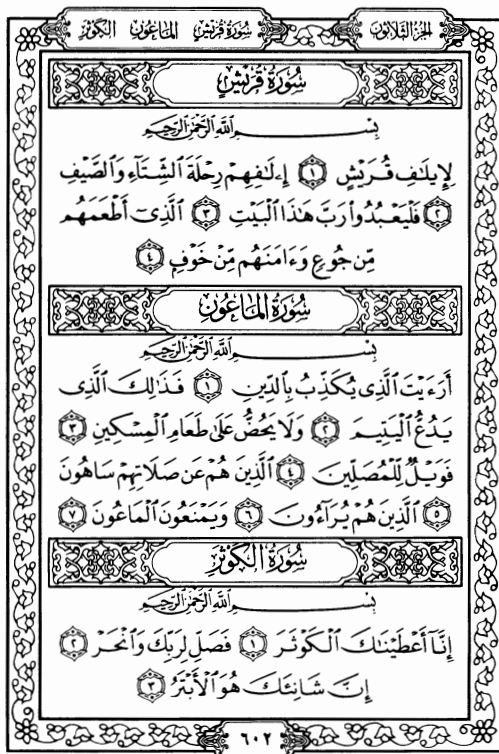 سُورَةُ قُرَيْشٍ الْمَاعُونِ الْكَوْثَرِ الجُزْءُ الثَّلَاثُونَ
سُورَةُ قُرَيْشٍ
بِسْمِ ٱللَّهِ ٱلرَّحْمَٰنِ ٱلرَّحِيمِ
لِإِيلَٰفِ قُرَيْشٍ ١ إِۦلَٰفِهِمْ رِحْلَةَ ٱلشِّتَآءِ وَٱلصَّيْفِ
٢ فَلْيَعْبُدُوا۟ رَبَّ هَٰذَا ٱلْبَيْتِ ٣ ٱلَّذِىٓ أَطْعَمَهُم
مِّن جُوعٍ وَءَامَنَهُم مِّنْ خَوْفٍۭ ٤
سُورَةُ الْمَاعُونِ
بِسْمِ ٱللَّهِ ٱلرَّحْمَٰنِ ٱلرَّحِيمِ
أَرَءَيْتَ ٱلَّذِى يُكَذِّبُ بِٱلدِّينِ ١ فَذَٰلِكَ ٱلَّذِى
يَدُعُّ ٱلْيَتِيمَ ٢ وَلَا يَحُضُّ عَلَىٰ طَعَامِ ٱلْمِسْكِينِ ٣
فَوَيْلٌ لِّلْمُصَلِّينَ ٤ ٱلَّذِينَ هُمْ عَن صَلَاتِهِمْ سَاهُونَ
٥ ٱلَّذِينَ هُمْ يُرَآءُونَ ٦ وَيَمْنَعُونَ ٱلْمَاعُونَ ٧
سُورَةُ الْكَوْثَرِ
بِسْمِ ٱللَّهِ ٱلرَّحْمَٰنِ ٱلرَّحِيمِ
إِنَّآ أَعْطَيْنَٰكَ ٱلْكَوْثَرَ ١ فَصَلِّ لِرَبِّكَ وَٱنْحَرْ ٢
إِنَّ شَانِئَكَ هُوَ ٱلْأَبْتَرُ ٣
٦٠٢